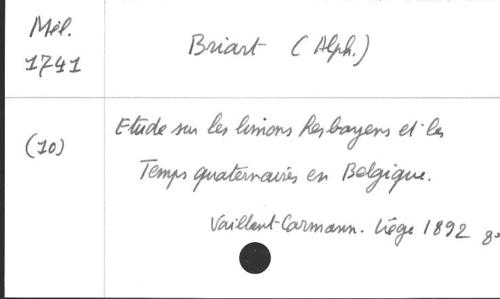 Mél.
1741
Briart (Alph.)
(10)
Etude sur les limons hesbayens et les
Temps quaternaires en Belgique.
Vaillant-Carmann. Liége 1892 8°